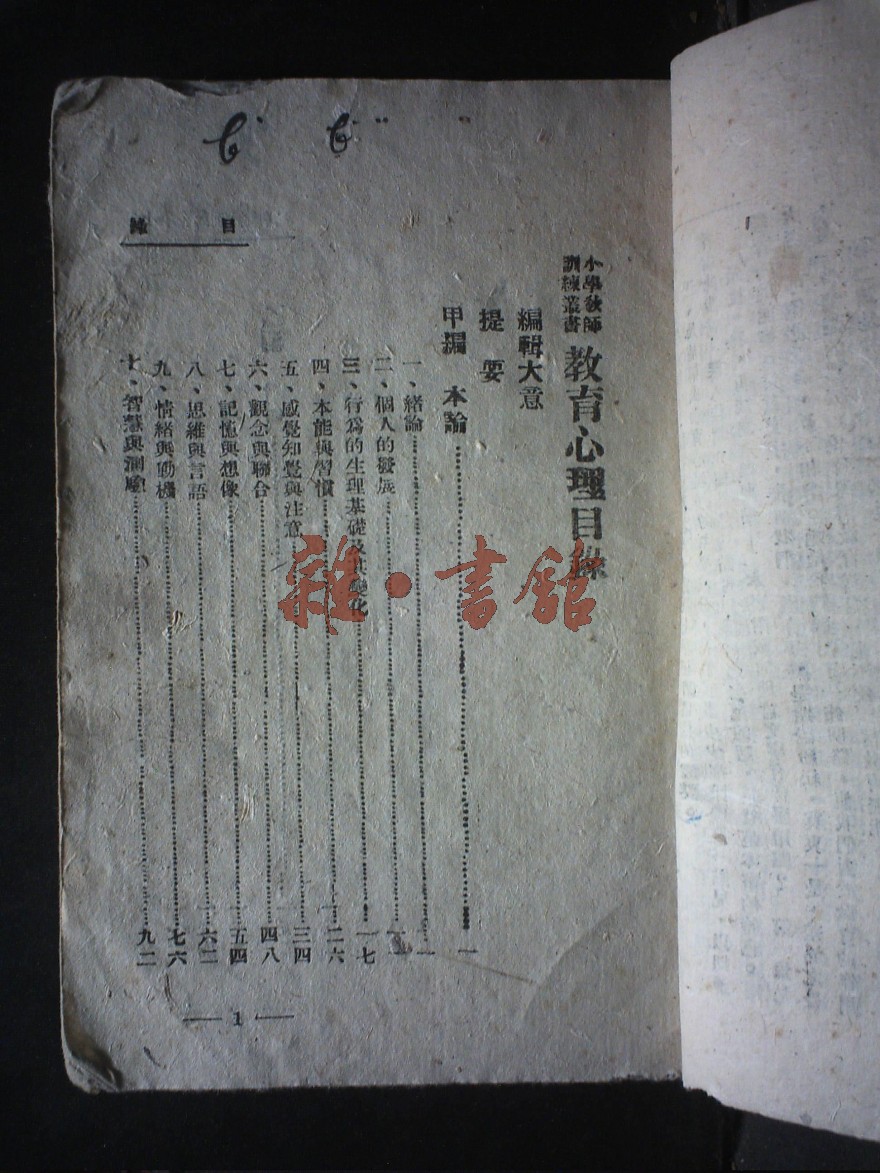 小學教師
訓練叢書
教育心理目錄
編輯大意
提要
甲編 本論……一
一、緒論……一
二、個人的發展……
三、行為的生理基礎及其變化……一七
四、本能與習慣……二六
五、感覺知覺與注意……三四
六、觀念與聯合……四八
七、記憶與想像……五四
八、思維與言語……六二
九、情緒與動機……七六
十、智慧與測驗……九二
目錄
— 1 —
雜·書館